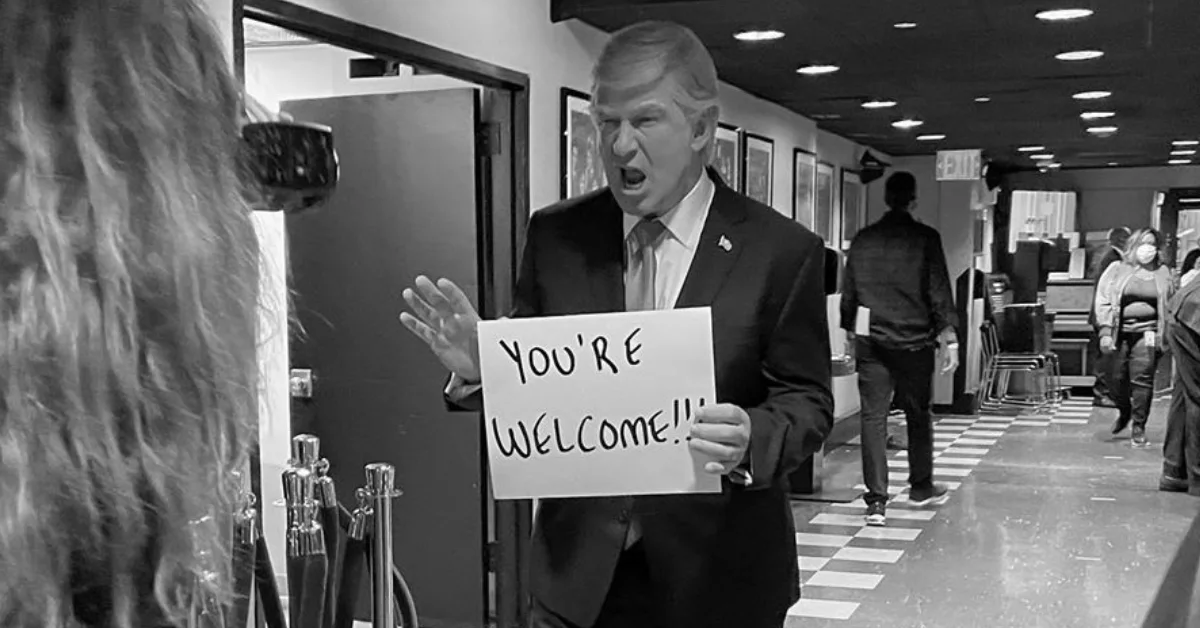 YOU'RE
WELCOME!!!
EXIT